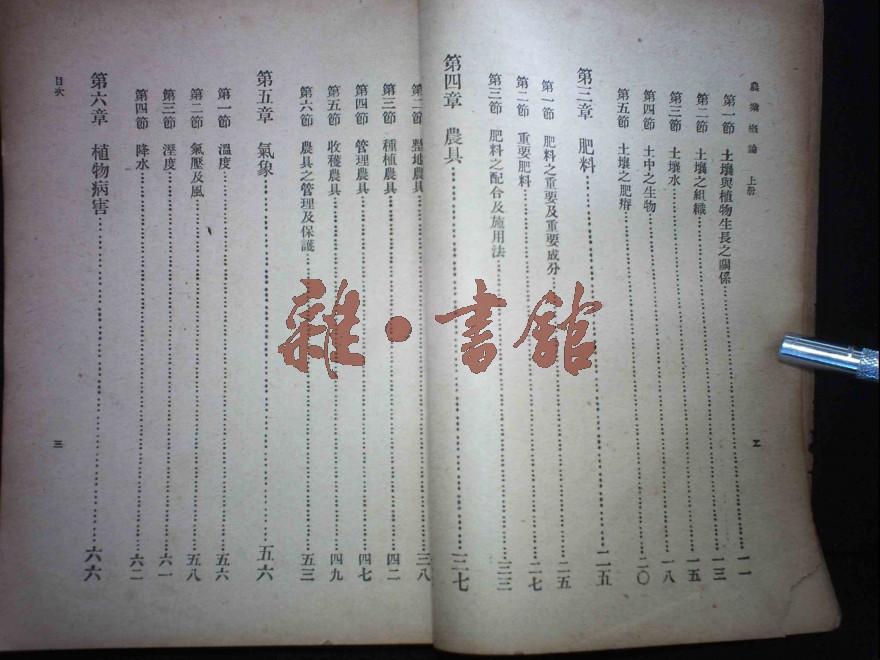 農業概論 上册
第一節 土壤與植物生長之關係 一一
第二節 土壤之組織 一三
第三節 土壤水 一五
第四節 土中之生物 一八
第五節 土壤之肥瘠 二〇
第三章 肥料 二五
第一節 肥料之重要及重要成分 二五
第二節 重要肥料 二七
第三節 肥料之配合及施用法 三三
第四章 農具 三七
第二節 整地農具 三八
第三節 種植農具 四二
第四節 管理農具 四七
第五節 收穫農具 四九
第六節 農具之管理及保護 五三
第五章 氣象 五六
第一節 溫度 五六
第二節 氣壓及風 五八
第三節 溼度 六一
第四節 降水 六二
第六章 植物病害 六六
目次
三
雜·書館